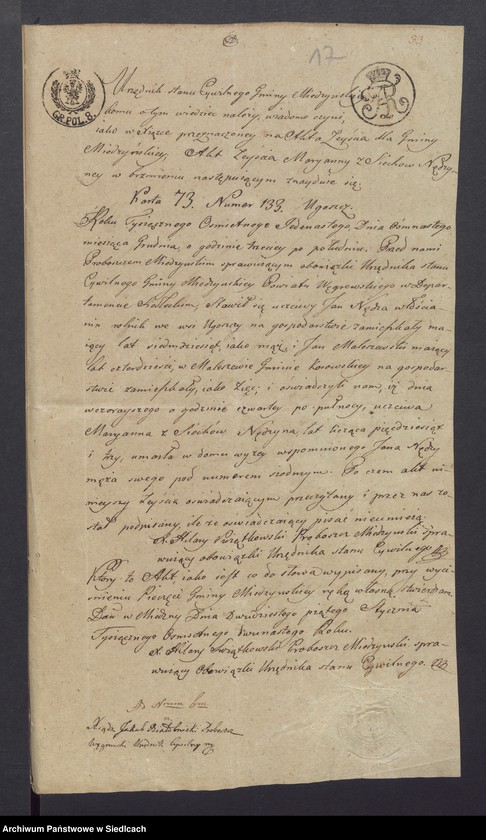 17
93
GR. POL. 8.
Urzędnik stanu Cywilnego Gminy Miedzynskiey
komu o tym wiedzieć należy, wiadomo czyni,
iako w Xiędze przeznaczoney na Akta Zeyścia dla Gminy
Miedzyńskiey, Akt Zeyścia Maryanny z Siechow Nędzy-
ney w brzmieniu następuiącym znayduie się.
Karta 73. Numer 133. Ugoszcz.
Roku Tysiącznego Osmsetnego Jedenastego, Dnia Osmnastego
miesiąca Grudnia, o godzinie trzeciey po południu. Przed nami
Proboszczem Miedzynskim sprawuiącym obowiązki Urzędnika stanu
Cywilnego Gminy Miedzynskiey Powiatu Węgrowskiego w Depar-
tamencie Siedleckim, Stawił się uczciwy Jan Nędza włościa-
nin rolnik we wsi Ugoszczy na gospodarstwie zamieszkały ma-
iący lat siedmdziesiąt, iako mąż, i Jan Maliszewski maiący
lat czterdzieści, w Maliszewie Gminie Kosowskiey na gospodar-
stwie zamieszkały, iako Zięć; i oświadczyli nam, iż dnia
wczorayszego o godzinie czwartey po północy, uczciwa
Maryanna z Siechów Nędzyna, lat licząca pięćdziesiąt
i trzy, umarła w domu wyżey wspomnionego Jana Nędzy
męża swego pod numerem siodmym. Po czem akt ni-
nieyszy Zeyścia oświadczaiącym przeczytany i przez nas zo-
stał podpisany, ile że oświadczaiący pisać nieumieią
X. Hilary Swiątkowski Proboszcz Miedzynski spra-
wuiący obowiązki Urzędnika stanu Cywilnego
Który to Akt, iako iest co do słowa wypisany, przy wyci-
śnieniu Pieczęci Gminy Miedzynskiey ręką własną stwierdzam.
Dan w Miedzny Dnia Dwudziestego piątego Stycznia
Tysiącznego Osmsetnego Dwunastego Roku.
X. Hilary Swiątkowski Proboszcz Miedzynski spra-
wuiący Obowiązki Urzędnika stanu Cywilnego.
Xiądz Jakub
Urzędnik Cywilny
Archiwum Państwowe w Siedlcach